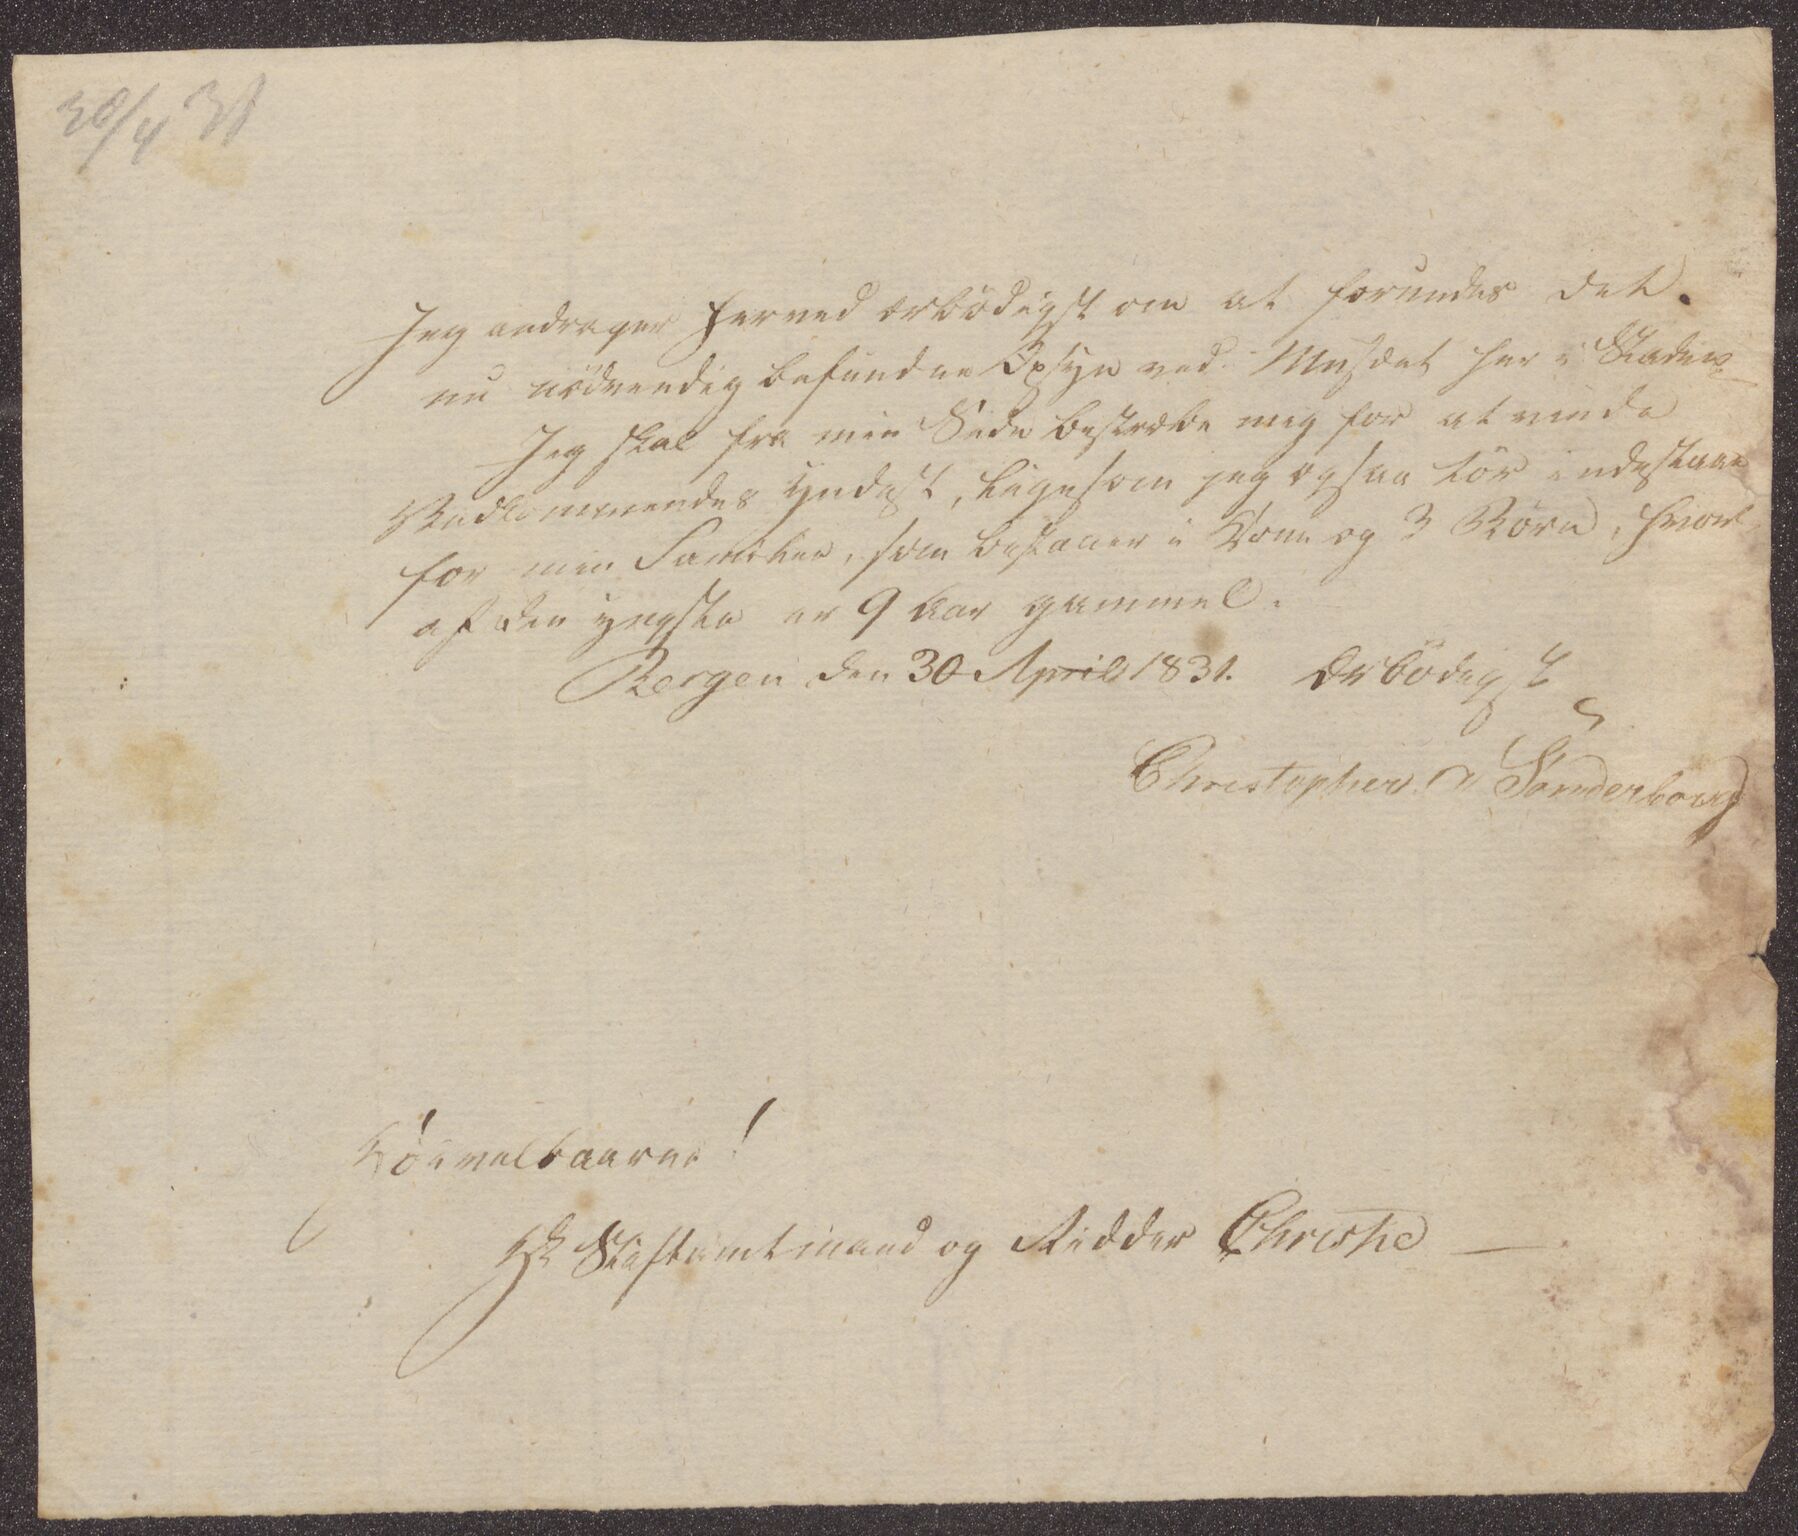 30/4 31
Jeg andrager herved ærbödigst om at forundes det
nu nödvendig befundne Opsyn ved Musæet her i Staden
Jeg skal fra min Side bestræbe mig for at vinde
Vedkommendes Yndest, ligesom jeg ogsaa tör indestaae
for min Familie, som bestaaer i Kone og 3 Börn, hvor
af den yngste er 9 Aar gammel.
Bergen den 30 April 1831. Ærbödigst
Christopher Sonderborg
Höivelbaarne!
Hr Stiftamtmand og Ridder Christie